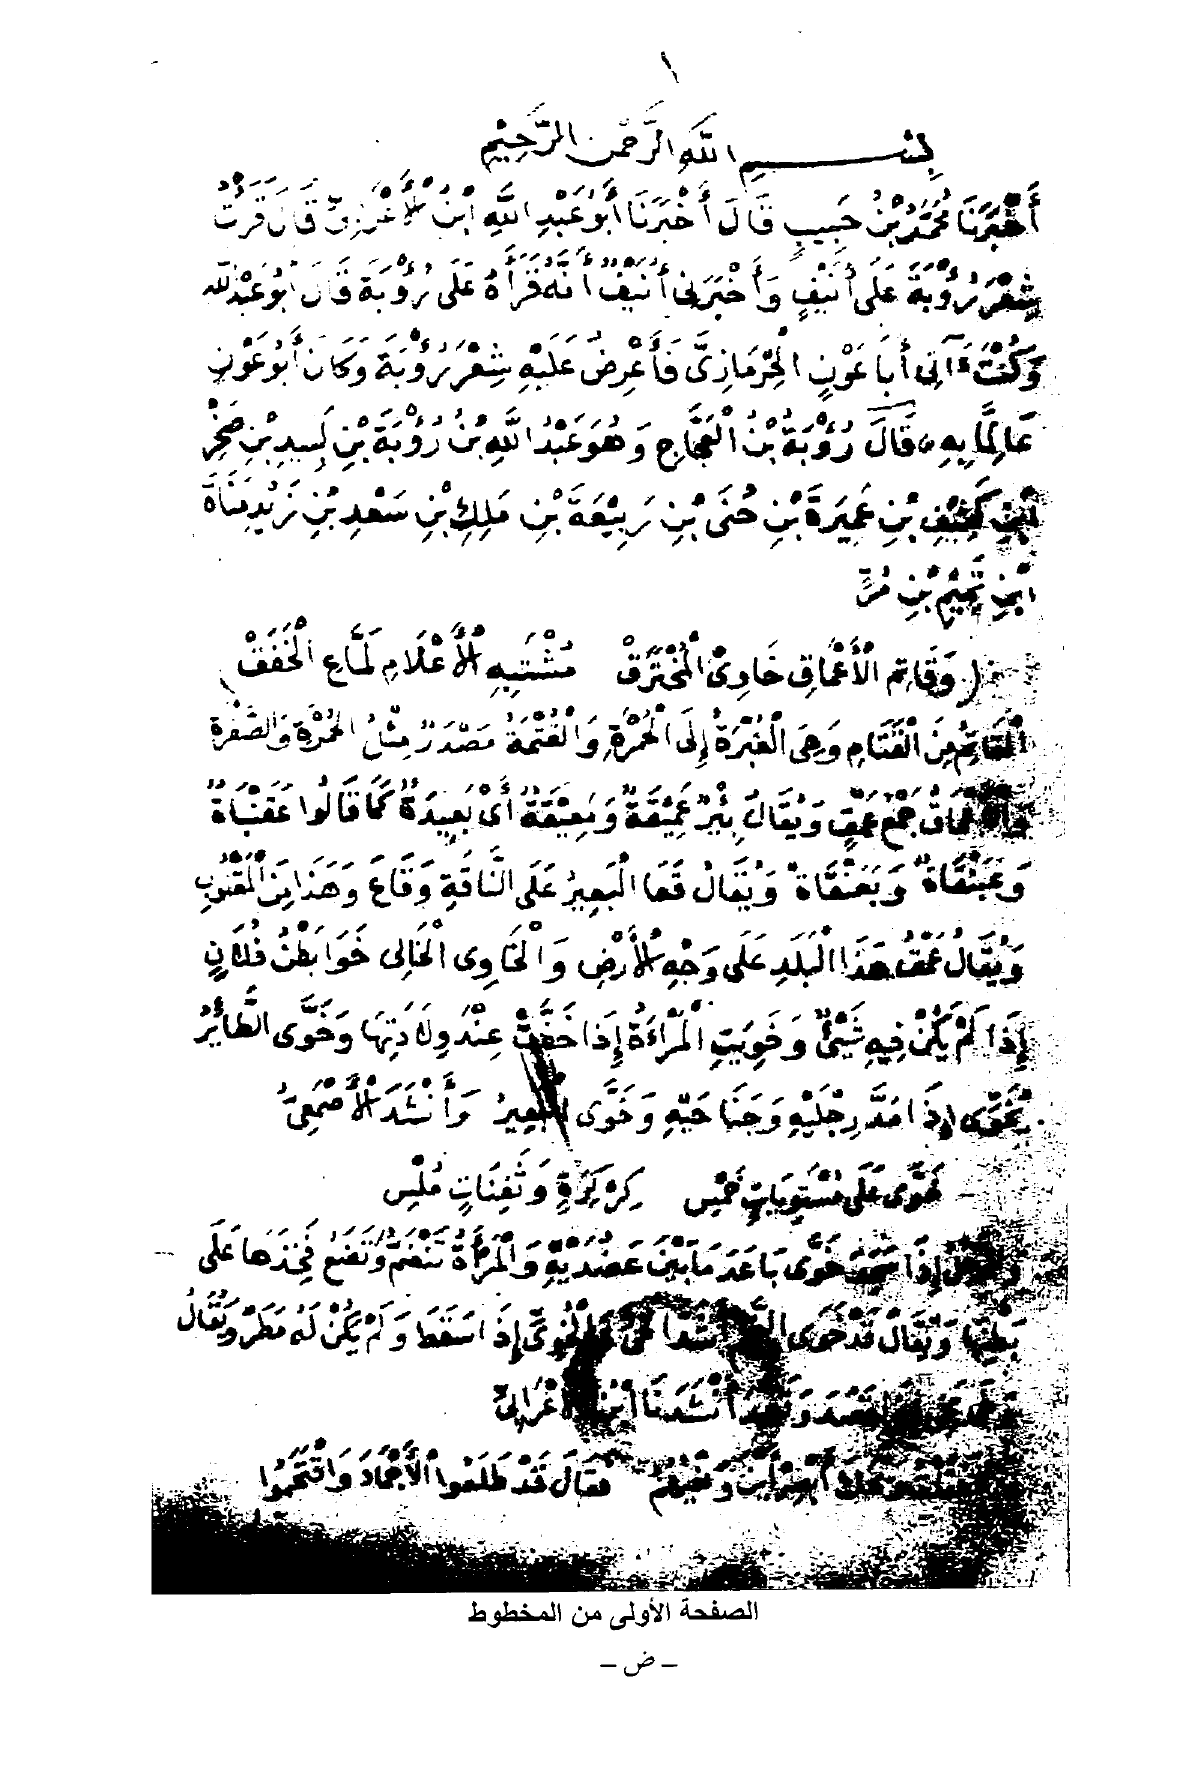 ١
بِسْمِ اللَّهِ الرَّحْمَنِ الرَّحِيمِ
أَخْبَرَنَا مُحَمَّدُ بْنُ حَبِيبٍ قَالَ أَخْبَرَنَا أَبُو عَبْدِ اللَّهِ ابْنُ الْأَعْرَابِيِّ قَالَ قَرَأْتُ
شِعْرَ رُؤْبَةَ عَلَى أُنَيْفٍ وَأَخْبَرَنِي أُنَيْفٌ أَنَّهُ قَرَأَهُ عَلَى رُؤْبَةَ قَالَ أَبُو عَبْدِ اللَّهِ
وَكُنْتُ آتِي أَبَا عَوْنٍ الْحِرْمَازِيَّ فَأَعْرِضُ عَلَيْهِ شِعْرَ رُؤْبَةَ وَكَانَ أَبُو عَوْنٍ
عَالِمًا بِهِ قَالَ رُؤْبَةُ بْنُ الْعَجَّاجِ وَهُوَ عَبْدُ اللَّهِ بْنُ رُؤْبَةَ بْنِ لَبِيدِ بْنِ صَخْرِ
بْنِ كَنِيْفِ بْنِ عَمِيرَةَ بْنِ حُنَىِّ بْنِ رَبِيْعَةَ بْنِ مَلِكِ بْنِ سَعْدِ بْنِ زَيْدِ مَنَاةَ
ابْنِ تَمِيْمِ بْنِ مُرٍّ
وَقَاتِمِ الْأَعْمَاقِ خَاوِى الْمُخْتَرَقْ مُشْتَبِهِ الْأَعْلَامِ لَمَّاعِ الْخَفَقْ
الْقَاتِمُ مِنَ الْقَتَامِ وَهِيَ الْغُبْرَةُ إِلَى الْحُمْرَةِ وَالْقُتْمَةُ مَصْدَرٌ مِثْلُ الْحُمْرَةِ وَالصُّفْرَةِ
وَالْأَعْمَاقُ جَمْعُ عَمْقٍ وَيُقَالُ بِئْرٌ عَمِيْقَةٌ وَمَعِيْقَةٌ أَىْ بَعِيدَةٌ كَمَا قَالُوا عَقَنْبَاةٌ
وَعَبَنْقَاةٌ وَبَعَنْقَاةٌ وَيُقَالُ قَعَا الْبَعِيرُ عَلَى النَّاقَةِ وَقَاعَ وَهَذَا مِنَ الْمَقْلُوبِ
وَيُقَالُ عَمْقُ هَذَا الْبَلَدِ عَلَى وَجْهِ الْأَرْضِ وَالْخَاوِى الْخَالِى خَوَا بَطْنُ فُلَانٍ
إِذَا لَمْ يَكُنْ فِيهِ شَيْئٌ وَخَوِيَتِ الْمَرْأَةُ إِذَا خَفَّتْ عِنْدَ وِلَادَتِهَا وَخَوَّى الطَّائِرُ
يُخَوِّى إِذَا مَدَّ رِجْلَيْهِ وَجَنَاحَيْهِ وَخَوَّى الْبَعِيرُ وَأَنْشَدَ الْأَصْمَعِيُّ
خَوَّى عَلَى مُسْتَوِيَاتٍ خَمْسِ كِرْكِرَةٍ وَثَفِنَاتٍ مُلْسِ
إِذَا سَجَدَ خَوَّى بَاعَدَ مَا بَيْنَ عَضُدَيْهِ وَالْمَرْأَةُ تَنْضَمُّ وَتَضَعُ فَخِذَهَا عَلَى
بَطْنِهَا وَيُقَالُ قَدْ خَوَى إِذَا سَقَطَ وَلَمْ يَكُنْ لَهُ مَطَرٌ وَيُقَالُ
أَنْشَدَنَا ابْنُ الْأَعْرَابِيِّ
فَقَالَ قَدْ طَلَعُوا الْأَجْمَادَ وَاقْتَحَمُوا
الصفحة الأولى من المخطوط
ـ ض ـ